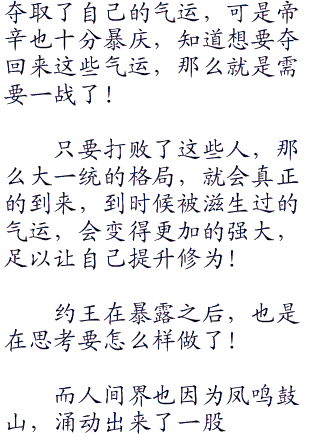 夺取了自己的气运，可是帝
辛也十分暴庆，知道想要夺
回来这些气运，那么就是需
要一战了！
只要打败了这些人，那
么大一统的格局，就会真正
的到来，到时候被滋生过的
气运，会变得更加的强大，
足以让自己提升修为！
约王在暴露之后，也是
在思考要怎么样做了！
而人间界也因为凤鸣鼓
山，涌动出来了一股